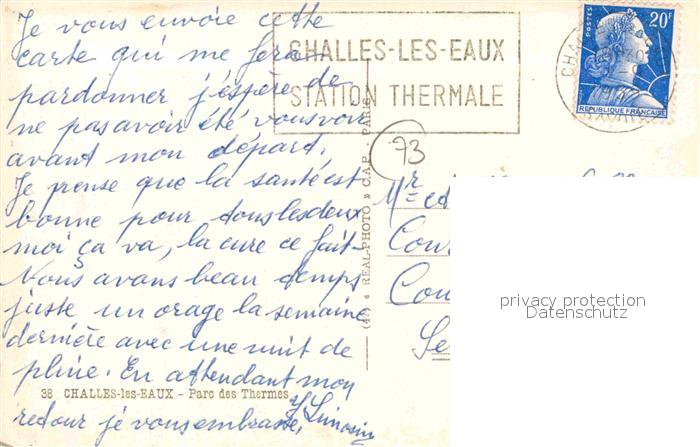 Je vous envoie cette
carte qui me fera
pardonner j'espère de
ne pas avoir été vous voir
avant mon départ.
Je pense que la santé est
bonne pour tous les deux
moi ça va, la cure ce fait-
Nous avans beau temps
juste un orage la semaine
dernière avec une nuit de
pluie. En attendant mon
38 CHALLES-les-EAUX - Parc des Thermes
retour je vous embrasse,
Y Limosin
CHALLES-LES-EAUX
STATION THERMALE
CHA
POSTES
20F
REPUBLIQUE FRANÇAISE
73
« REAL-PHOTO » C.A.P. PARIS
Mr et
Cou
Cou
Se
privacy protection
Datenschutz